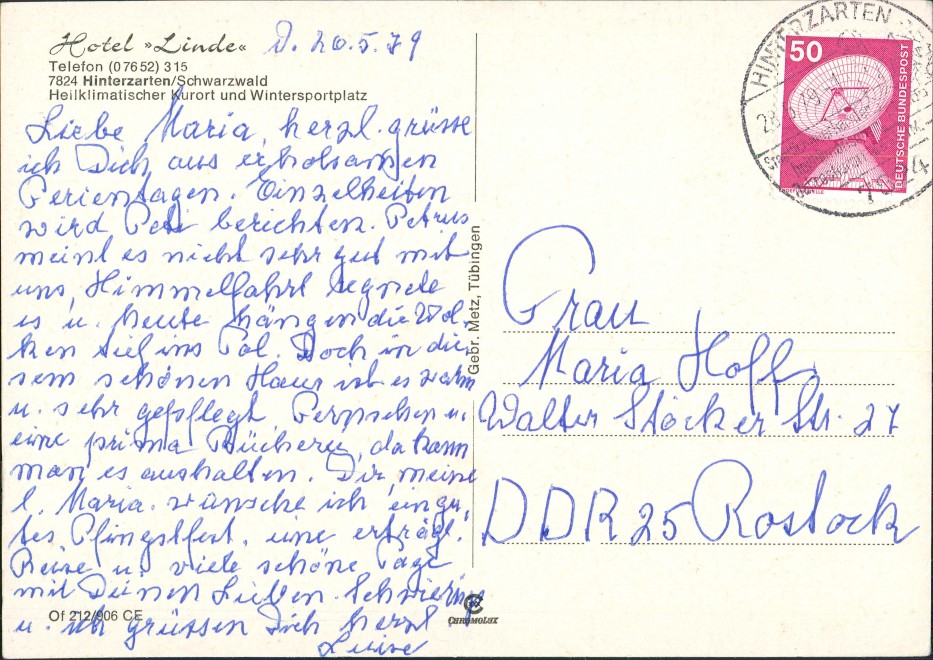 Hotel »Linde« D. 26.5.79
Telefon (07652) 315
7824 Hinterzarten/Schwarzwald
Heilklimatischer Kurort und Wintersportplatz
Liebe Maria, herzl. grüsse
ich Dich aus erholsamen
Ferientagen. Einzelheiten
wird berichten. Petrus
meint es nicht sehr gut mit
uns, Himmelfahrt regnete
es u. heute hängen die Wol-
ken tief ins Tal. Doch in die-
sem schönen Haus ist es warm
u. sehr gepflegt Fernsehen u.
eine prima Bücherei, da kann
man es aushalten. Dir, meine
l. Maria, wünsche ich ein gu-
tes Pfingstfest, eine erträgl.
Reise u. viele schöne Tage
mit Deinen Lieben.
u. ich grüssen Dich herzl.
Luise
Of 212/906 CE
Gebr. Metz, Tübingen
CHROMOLUX
HINTERZARTEN
50
DEUTSCHE BUNDESPOST
Frau
Maria Hoff
Walter Stöcker Str. 27
DDR 25 Rostock